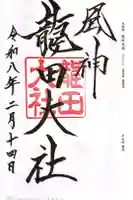 風神
龍田大社
龍田
大社
令和八年二月十四日